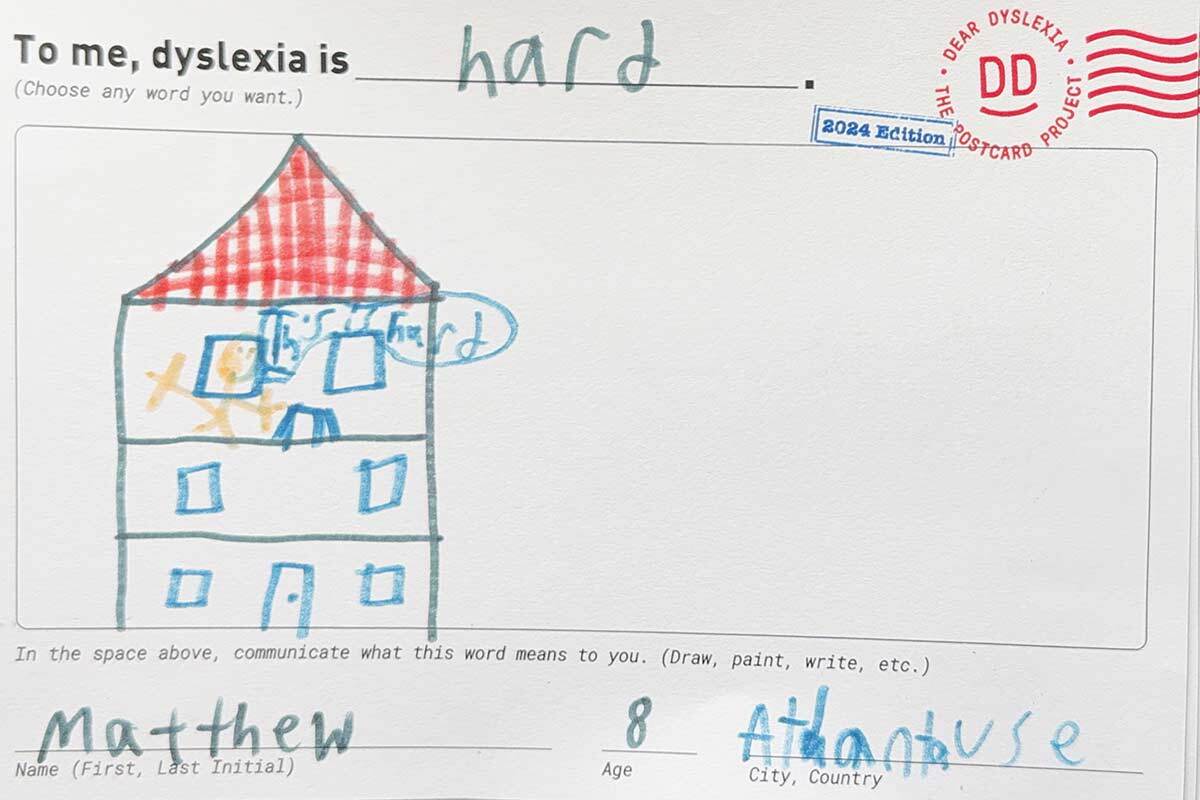 To me, dyslexia is hard.
(Choose any word you want.)
DEAR DYSLEXIA • THE POSTCARD PROJECT •
DD
2024 Edition
hard
In the space above, communicate what this word means to you. (Draw, paint, write, etc.)
Matthew 8
Name (First, Last Initial) Age City, Country